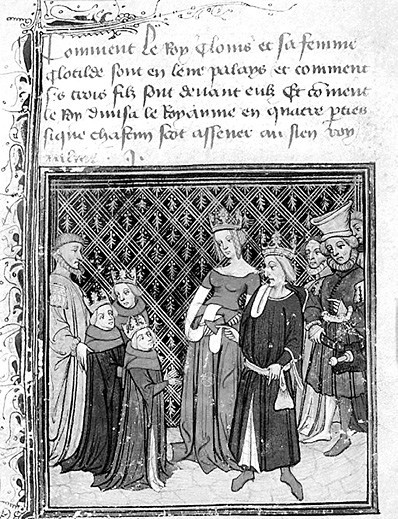 Comment Le Roy Clouis et sa femme
Clotilde sont en leur palays et comment
ses trois filz sont deuant eulx Et coment
le Roy diuisa le Royaume en quatre pties
si que chascun scot assener au sien roy